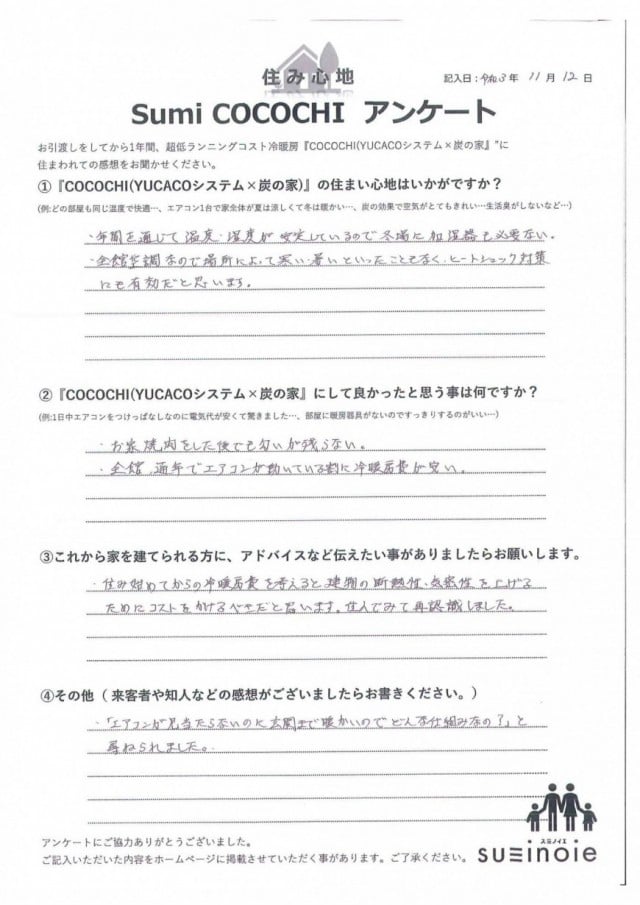 住み心地
記入日：令和3年 11月 12日
Sumi COCOCHI アンケート
お引渡しをしてから1年間、超低ランニングコスト冷暖房『COCOCHI(YUCACOシステム×炭の家』"に
住まわれての感想をお聞かせください。
①『COCOCHI(YUCACOシステム×炭の家)』の住まい心地はいかがですか？
(例:どの部屋も同じ温度で快適…、エアコン1台で家全体が夏は涼しくて冬は暖かい…、炭の効果で空気がとてもきれい…生活臭がしないなど…)
・年間を通じて温度・湿度が安定しているので冬場に加湿器も必要ない。
・全館空調なので場所によって寒い・暑いといったこともなく、ヒートショック対策
にも有効だと思います。
②『COCOCHI(YUCACOシステム×炭の家』にして良かったと思う事は何ですか？
(例:1日中エアコンをつけっぱなしなのに電気代が安くて驚きました…、部屋に暖房器具がないのですっきりするのがいい…)
・お家焼肉をした後でも匂いが残らない。
・全館、通年でエアコンが動いている割に冷暖房費が安い。
③これから家を建てられる方に、アドバイスなど伝えたい事がありましたらお願いします。
・住み始めてからの冷暖房費を考えると建物の断熱性・気密性を上げる
ためにコストをかけるべきだと思います。住んでみて再認識しました。
④その他（来客者や知人などの感想がございましたらお書きください。）
・「エアコンが見当たらないのに玄関まで暖かいのでどんな仕組みなの？」と
尋ねられました。
アンケートにご協力ありがとうございました。
ご記入いただいた内容をホームページに掲載させていただく事があります。ご了承ください。
スミノイエ
suminoie